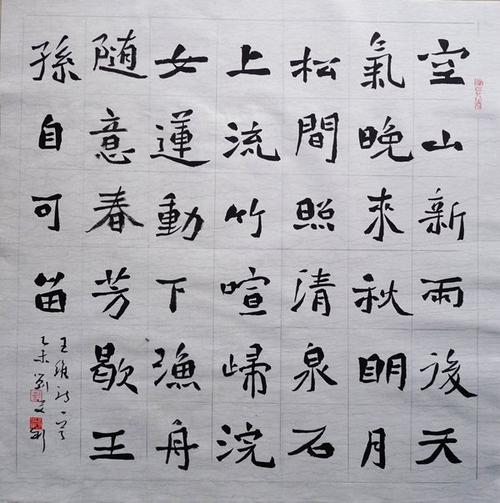 空山新雨後天
氣晚來秋眀月
松間照清泉石
上流竹喧歸浣
女蓮動下漁舟
随意春芳歇王
孫自可留
王維詩一首
乙未